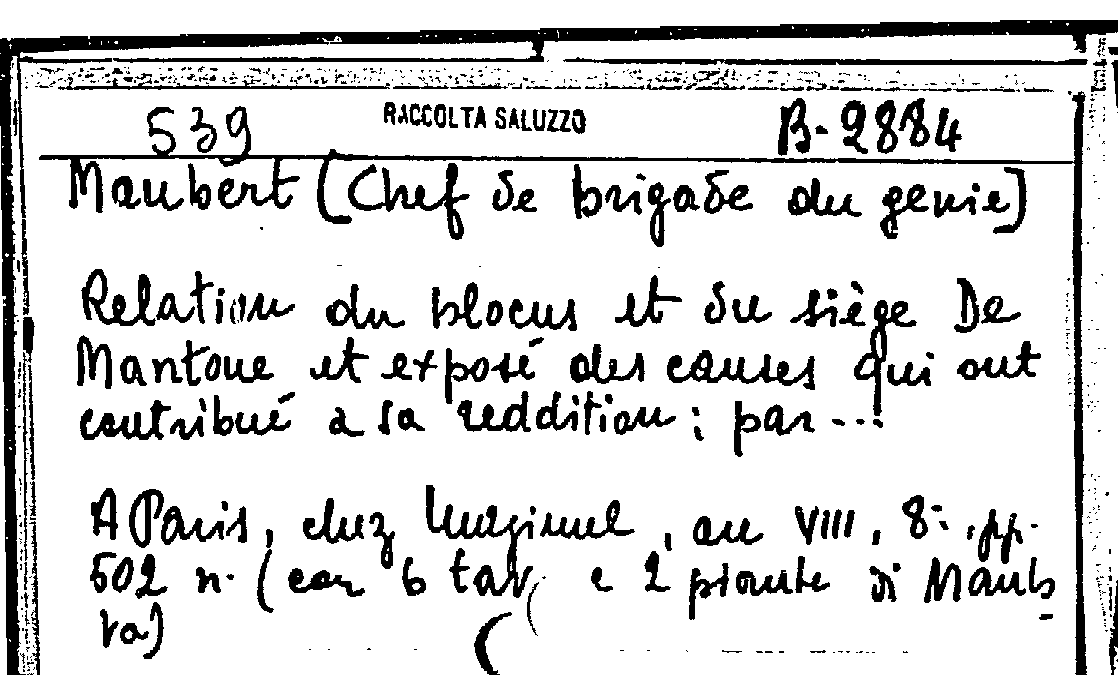 539 RACCOLTA SALUZZO B-2884
Maubert (Chef de brigade du genie)
Relation du blocus et du siège De
Mantoue et exposé des causes qui ont
contribué a sa reddition; par...
A Paris, chez Magimel, an VIII, 8º, pp.
502 n. (con 6 tav. e 2 piante di Manto
va)